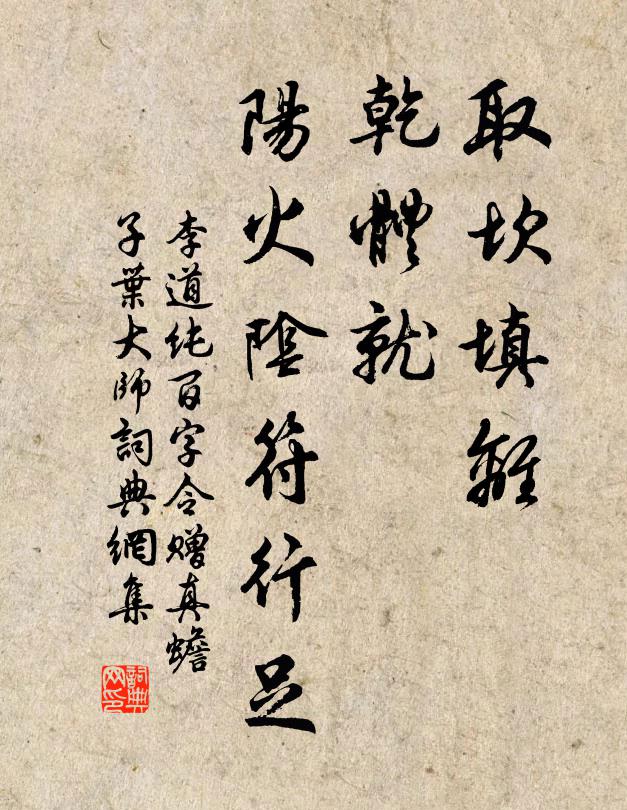 取坎填離
乾體就
陽火陰符行足
李道純百字令贈真蟾
子葉大師詞典網集
詞典
网印